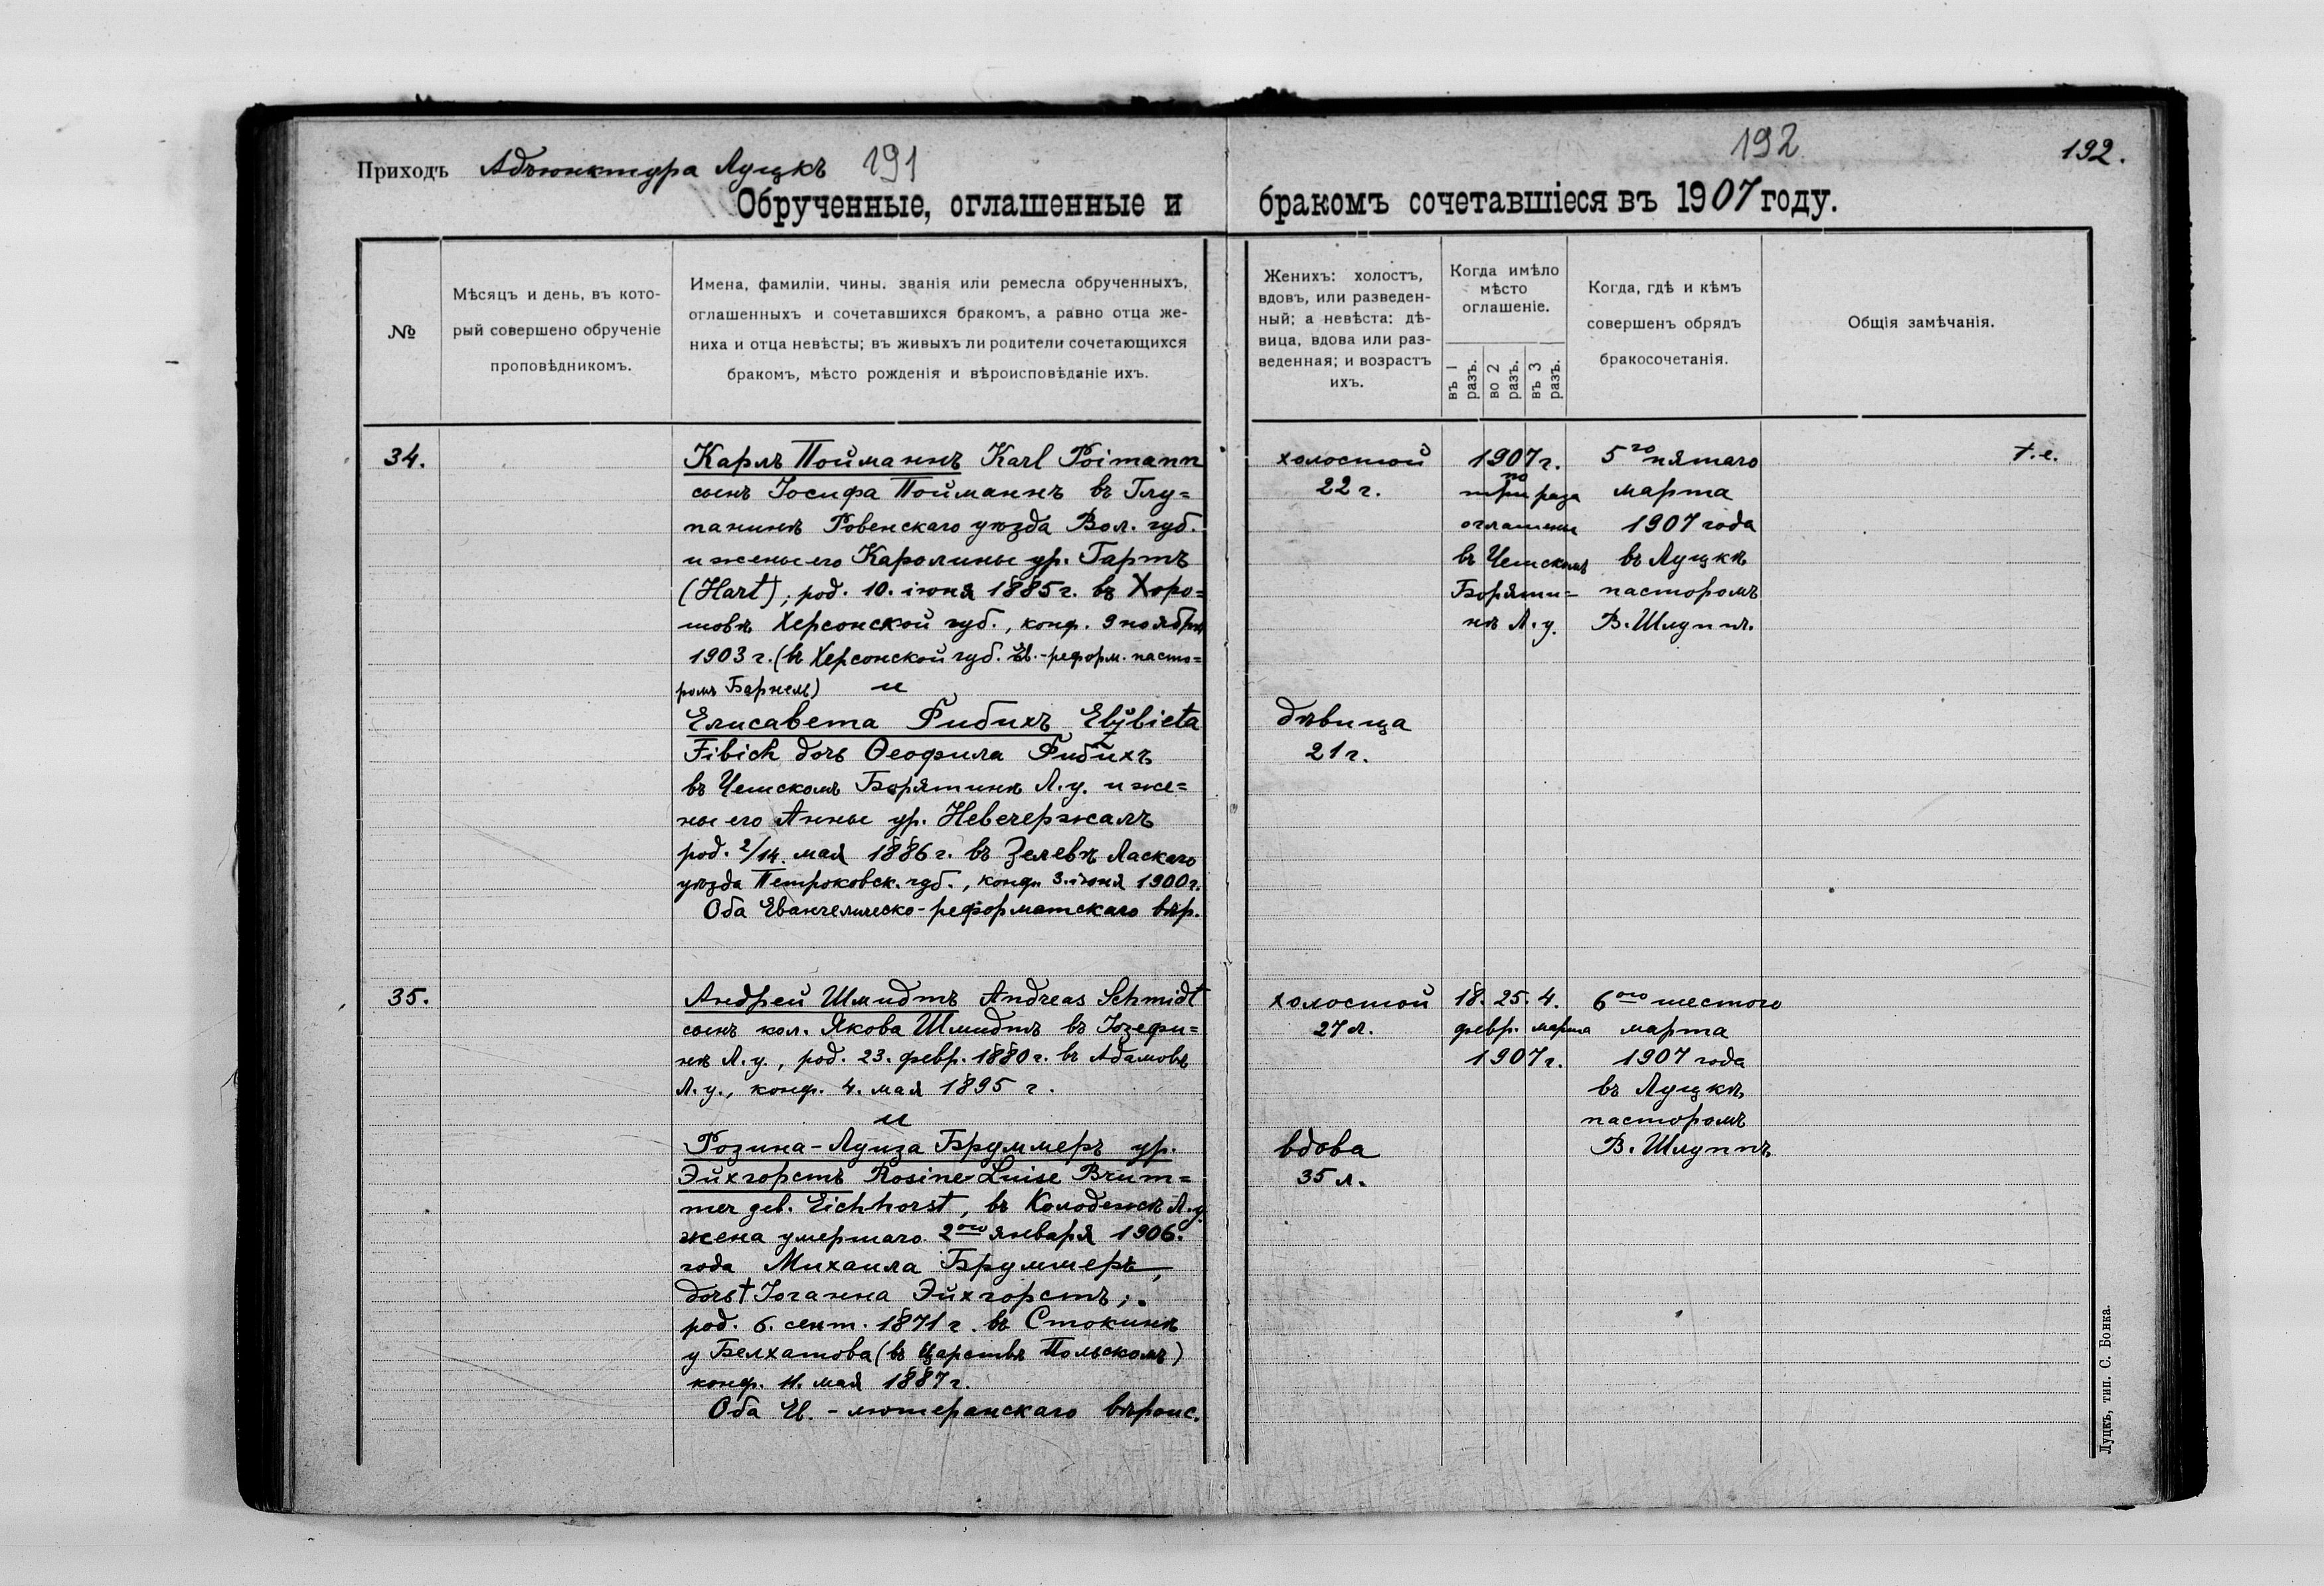 Приходъ Адъюнктура Луцкъ 191
192
192.
Обрученные, оглашенные и бракомъ сочетавшіеся въ 1907 году.
№
Мѣсяцъ и день, въ кото-
рый совершено обрученіе
проповѣдникомъ.
Имена, фамиліи, чины, званія или ремесла обрученныхъ,
оглашенныхъ и сочетавшихся бракомъ, а равно отца же-
ниха и отца невѣсты; въ живыхъ ли родители сочетающихся
бракомъ, мѣсто рожденія и вѣроисповѣданіе ихъ.
Женихъ: холостъ,
вдовъ, или разведен-
ный; а невѣста: дѣ-
вица, вдова или раз-
веденная; и возрастъ
ихъ.
Когда имѣло
мѣсто
оглашеніе.
въ 1
разъ.
во 2
разъ.
въ 3
разъ.
Когда, гдѣ и кѣмъ
совершенъ обрядъ
бракосочетанія.
Общія замѣчанія.
34.
Карлъ Пойманнъ Karl Poimann
сынъ Іосифа Пойманнъ въ Глу=
панинѣ Ровенскаго уѣзда Вол. губ.
и жены его Каролины ур. Гартъ
(Hart); род. 10. іюня 1885 г. въ Хоро=
шовѣ Херсонской губ., конф. 9 ноября
1903 г. (въ Херсонской губ. Ев.-реформ. пасто=
ромъ Барнель) и
Елисавета Фибихъ Elżbieta
Fibich дочь Ѳеофила Фибихъ
въ Чешскомъ Борятинѣ Л. у. и же=
ны его Анны ур. Невечержалъ
род. 2/14. мая 1886 г. въ Зелевѣ Ласкаго
уѣзда Петроковск. губ., конф. 3. іюня 1900 г.
Оба Евангелическо-реформатскаго вѣр.
холостой
22 г.
дѣвица
21 г.
1907 г.
по
три раза
оглашены
въ Чешскомъ
Боряти=
нѣ Л. у.
5го пятаго
марта
1907 года
въ Луцкѣ
пасторомъ
В. Шлуппъ.
т. е.
35.
Андрей Шмидтъ Andreas Schmidt
сынъ кол. Якова Шмидтъ въ Іозефи=
нѣ Л. у., род. 23. февр. 1880 г. въ Адамовѣ
Л. у., конф. 4. мая 1895 г.
и
Розина-Луиза Бруммеръ ур.
Эйхгорстъ Rosine Luise Brum=
mer geb. Eichhorst, въ Колоденскѣ Л. у.
жена умершаго 2ого января 1906.
года Михаила Бруммеръ,
дочь † Іоганна Эйхгорстъ;
род. 6. сент. 1871 г. въ Стокинѣ
у Белхатова (въ Царствѣ Польскомъ)
конф. 11. мая 1887 г.
Оба Ев. - лютеранскаго вѣроис.
холостой
27 л.
вдова
35 л.
18. 25. 4.
февр. марта
1907 г.
6ого шестого
марта
1907 года
въ Луцкѣ
пасторомъ
В. Шлуппъ
Луцкъ, тип. С. Бонка.